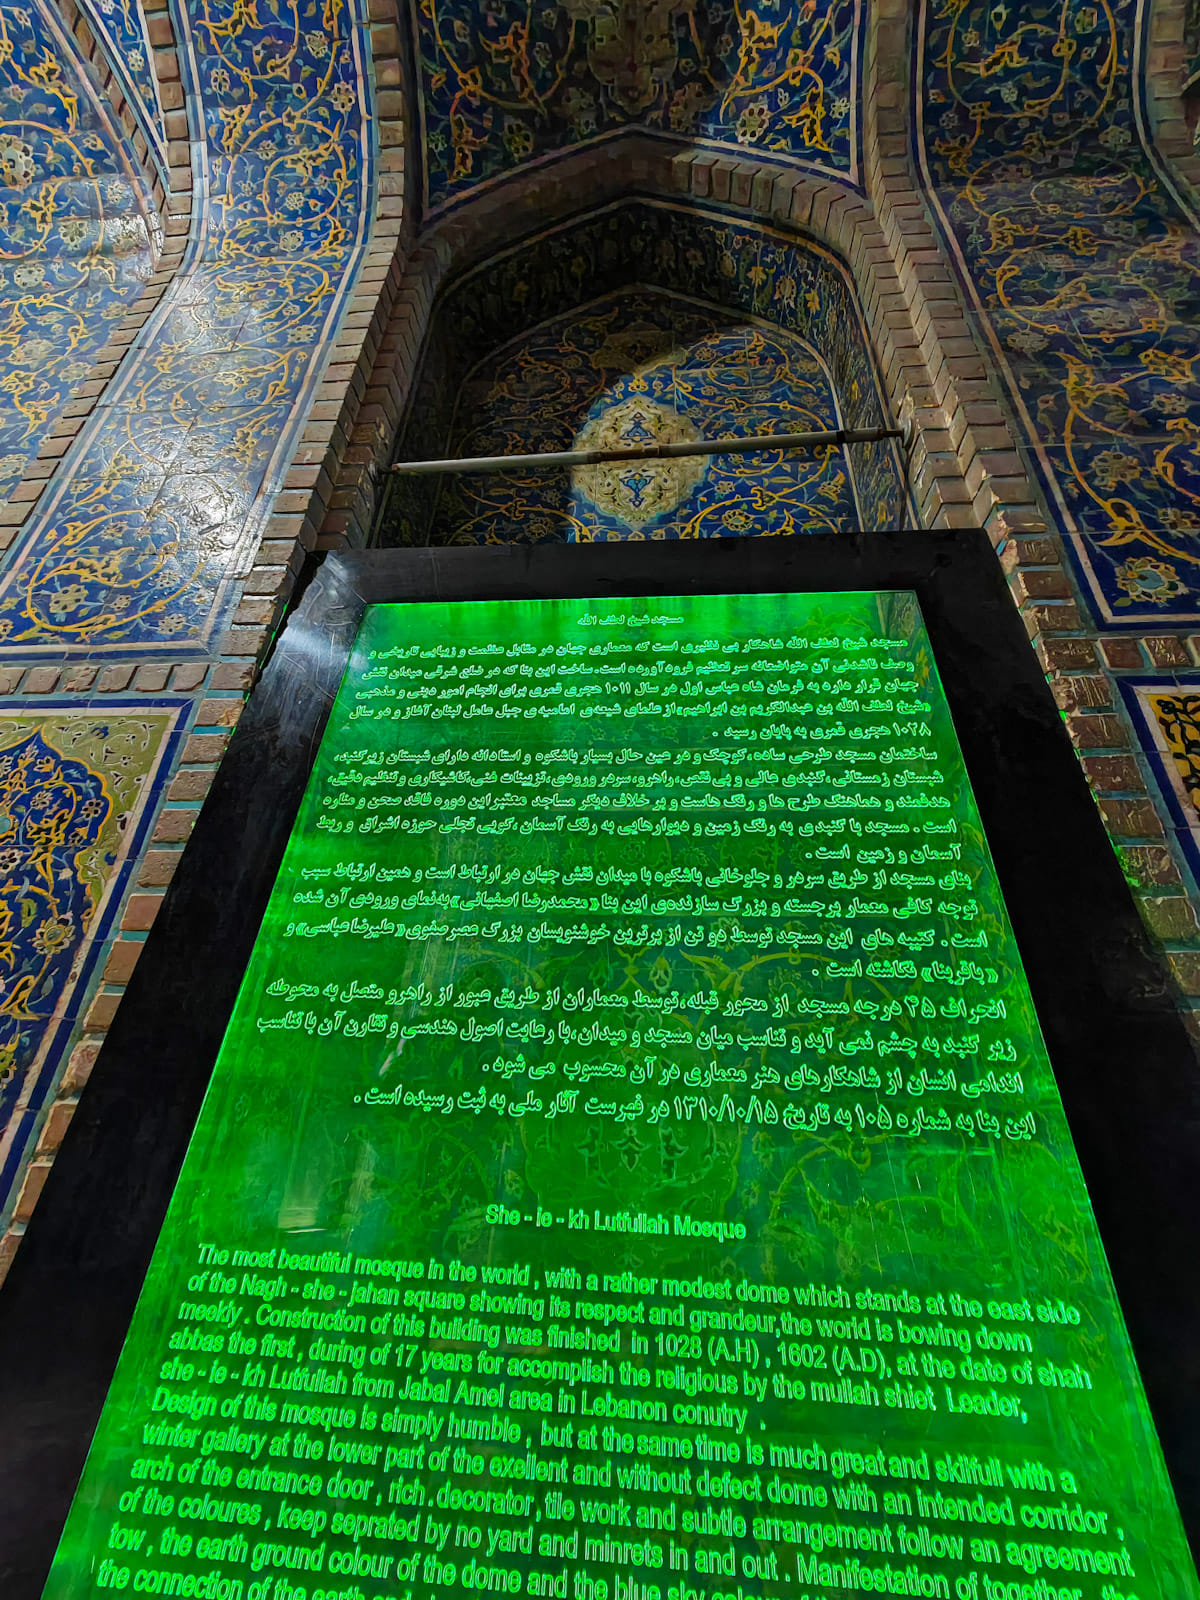 مسجد شیخ لطف الله
مسجد شیخ لطف الله شاهکار بی نظیری است که معماری جهان در مقابل عظمت و زیبایی تاریخی و
وصف ناشدنی آن متواضعانه سر تعظیم فرود آورده است. ساخت این بنا که در ضلع شرقی میدان نقش
جهان قرار دارد به فرمان شاه عباس اول در سال ۱۰۱۱ هجری قمری برای انجام امور دینی و مذهبی
«شیخ لطف الله بن عبدالکریم بن ابراهیم» از علمای شیعه‌ی امامیه‌ی جبل عامل لبنان آغاز و در سال
۱۰۲۸ هجری قمری به پایان رسید .
ساختمان مسجد طرحی ساده ،کوچک و در عین حال بسیار باشکوه و استادانه دارای شبستان زیرگنبد،
شبستان زمستانی، گنبدی عالی و بی نقص، راهرو، سردر ورودی، تزیینات فنی، کاشیکاری و تنظیم دقیق،
هدفمند و هماهنگ طرح ها و رنگ هاست و بر خلاف دیگر مساجد معتبر این دوره فاقد صحن و مناره
است . مسجد با گنبدی به رنگ زمین و دیوارهایی به رنگ آسمان ،گویی تجلی حوزه اشراق و ربط
آسمان و زمین است .
بنای مسجد از طریق سردر و جلوخانی باشکوه با میدان نقش جهان در ارتباط است و همین ارتباط سبب
توجه کافی معمار برجسته و بزرگ سازنده‌ی این بنا « محمدرضا اصفهانی» به‌نمای ورودی آن شده
است . کتیبه های این مسجد توسط دو تن از برترین خوشنویسان بزرگ عصرصفوی« علیرضاعباسی» و
« باقربنا» نگاشته است .
انحراف ۴۵ درجه مسجد از محور قبله ،توسط معماران از طریق عبور از راهرو متصل به محوطه
زیر گنبد به چشم نمی آید و تناسب میان مسجد و میدان ،با رعایت اصول هندسی و تقارن آن با تناسب
اندامی انسان از شاهکارهای هنر معماری در آن محسوب می شود .
این بنا به شماره ۱۰۵ به تاریخ ۱۳۱۰/۱۰/۱۵ در فهرست آثار ملی به ثبت رسیده است .
She - ie - kh Lutfullah Mosque
The most beautiful mosque in the world , with a rather modest dome which stands at the east side
of the Nagh - she - jahan square showing its respect and grandeur,the world is bowing down
meekly . Construction of this building was finished in 1028 (A.H) , 1602 (A.D), at the date of shah
abbas the first , during of 17 years for accomplish the religious by the mullah shiet Leader,
she - ie - kh Lutfullah from Jabal Amel area in Lebanon conutry .
Design of this mosque is simply humble , but at the same time is much great and skilfull with a
winter gallery at the lower part of the exellent and without defect dome with an intended corridor ,
arch of the entrance door , rich . decorator , tile work and subtle arrangement follow an agreement
of the coloures , keep seprated by no yard and minrets in and out . Manifestation of together , the
tow , the earth ground colour of the dome and the blue sky
the connection of the earth